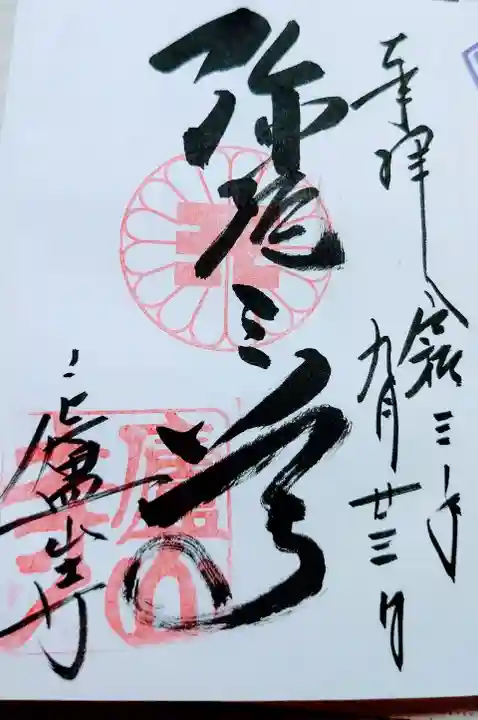 奉拝 令和三年
九月廿三日
弥陀三尊
廬山寺
廬山寺